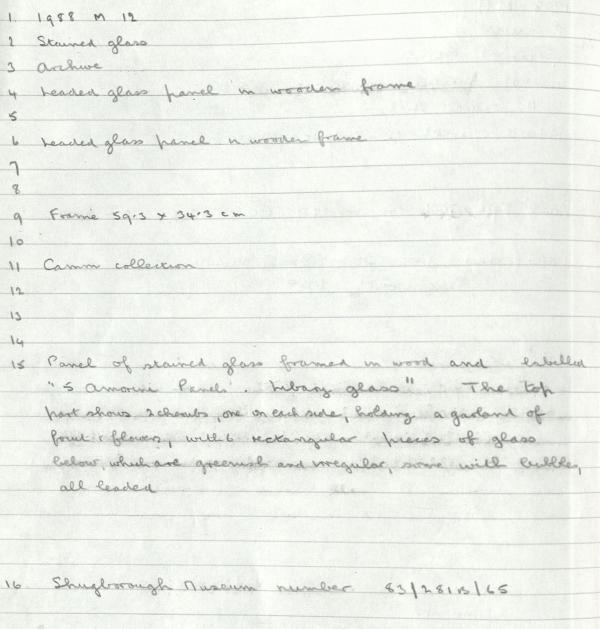 1. 1988 M 12
2 Stained glass
3 Archive
4 Leaded glass panel in wooden frame
5
6 Leaded glass panel in wooden frame
7
8
9 Frame 59.3 x 34.3 cm
10
11 Camm collection
12
13
14
15 Panel of stained glass framed in wood and labelled
"5 Amorini Panels. Libary glass" The top
part shows 2 cherubs, one on each side, holding a garland of
fruit & flowers, with 6 rectangular pieces of glass
below, which are greenish and irregular, some with bubbles,
all leaded
16 Shugborough Museum number 83/281B/65